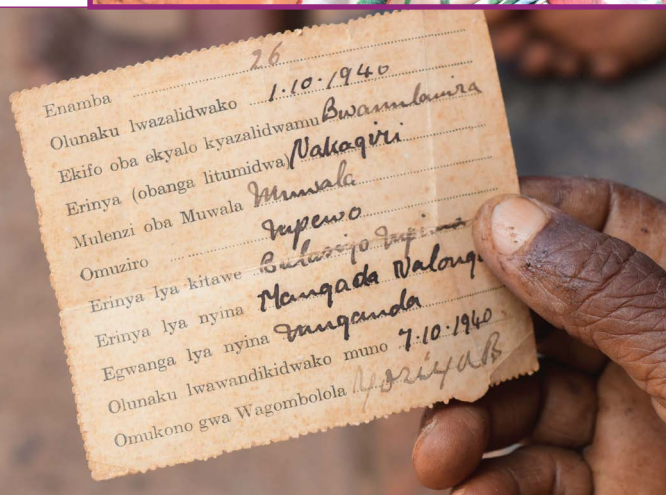 Enamba 26
Olunaku lwazalidwako 1.10.1940
Ekifo oba ekyalo kyazalidwamu Bwamulamira
Erinya (obanga litumidwa) Nakagiri
Mulenzi oba Muwala Muwala
Omuziro Mpewo
Erinya lya kitawe
Erinya lya nyina Mangada
Egwanga lya nyina Muganda
Olunaku lwawandikidwako muno 7.10.1940
Omukono gwa Wagombolola